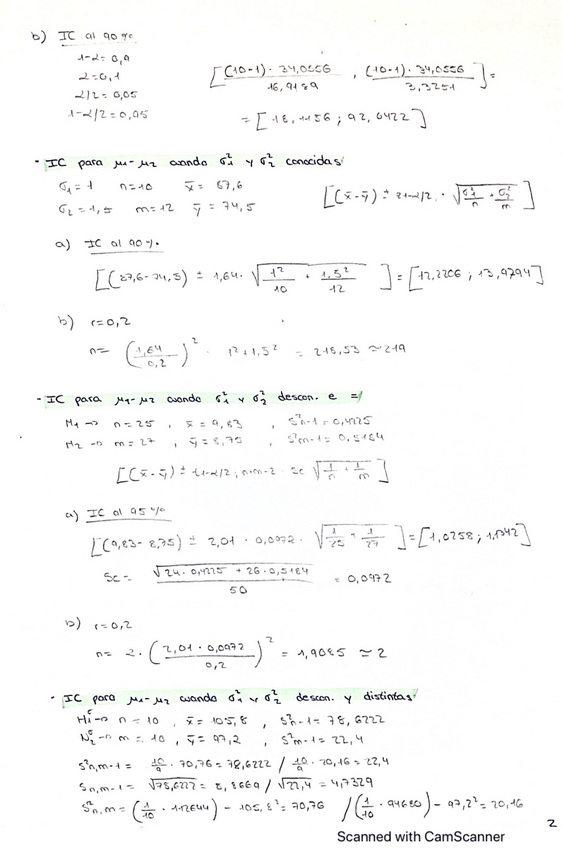 b) IC al 90%
1-α = 0,9
α = 0,1
α/2 = 0,05
1-α/2 = 0,05
[(10-1)·34,0556 / 16,9189 , (10-1)·34,0556 / 3,3251] =
= [18,1156 ; 92,0422]
- IC para μ1-μ2 cuando σ1² y σ2² conocidas
σ1 = 1 n=10 x̄ = 67,6
σ2 = 1,5 m=12 ȳ = 74,5
[(x̄-ȳ) ± z1-α/2 · √(σ1²/n + σ2²/m)]
a) IC al 90%
[(87,6-74,5) ± 1,64 · √(1²/10 + 1,5²/12)] = [12,2206 ; 13,9794]
b) r=0,2
n = (1,64/0,2)² · 1²+1,5² = 218,53 ≃ 219
- IC para μ1-μ2 cuando σ1² y σ2² descon. e =
M1 → n = 25 , x̄ = 9,83 , S²n-1 = 0,4225
M2 → m = 27 , ȳ = 8,75 , S²m-1 = 0,5184
[(x̄-ȳ) ± t1-α/2; n+m-2 · Sc √(1/n + 1/m)]
a) IC al 95%
[(9,83-8,75) ± 2,01 · 0,0972 · √(1/25 + 1/27)] = [1,0258 ; 1,1342]
Sc = √(24·0,4225 + 26·0,5184) / 50 = 0,0972
b) r=0,2
n = 2 · (2,01 · 0,0972 / 0,2)² = 1,9085 ≃ 2
- IC para μ1-μ2 cuando σ1² y σ2² descon. y distintas
n = 10 , x̄ = 105,8 , S²n-1 = 78,6222
m = 10 , ȳ = 97,2 , S²m-1 = 22,4
S²n,m-1 = 10/9 · 70,76 = 78,6222 / 10/9 · 20,16 = 22,4
Sn,m-1 = √78,6222 = 8,8669 / √22,4 = 4,7329
S²n,m = (1/10 · 112644) - 105,8² = 70,76 / (1/10 · 94680) - 97,2² = 20,16
2
Scanned with CamScanner